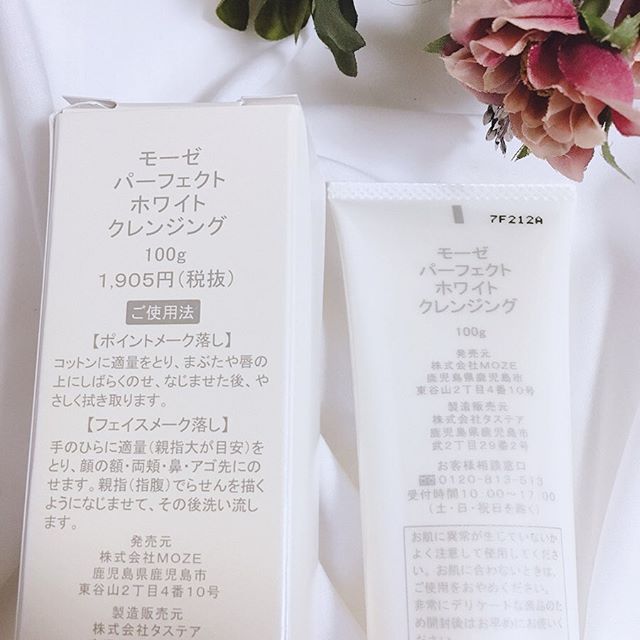 モーゼ
パーフェクト
ホワイト
クレンジング
100g
1,905円(税抜)
ご使用法
【ポイントメーク落し】
コットンに適量をとり、まぶたや唇の
上にしばらくのせ、なじませた後、や
さしく拭き取ります。
【フェイスメーク落し】
手のひらに適量(親指大が目安)を
とり、顔の額・両頬・鼻・アゴ先にの
せます。親指(指腹)でらせんを描く
ようになじませて、その後洗い流し
ます。
発売元
株式会社MOZE
鹿児島県鹿児島市
東谷山2丁目4番10号
製造販売元
株式会社タステア
7F212A
モーゼ
パーフェクト
ホワイト
クレンジング
100g
発売元
株式会社MOZE
鹿児島県鹿児島市
東谷山2丁目4番10号
製造販売元
株式会社タステア
鹿児島県鹿児島市
武2丁目29番2号
お客様相談窓口
0120-813-513
受付時間10:00〜17:00
(土・日・祝日を除く)
お肌に異常が生じていないか
よく注意して使用してくださ
い。お肌に合わないときは、
ご使用をおやめください。
非常にデリケートな商品のた
め開封後はお早めにお使い